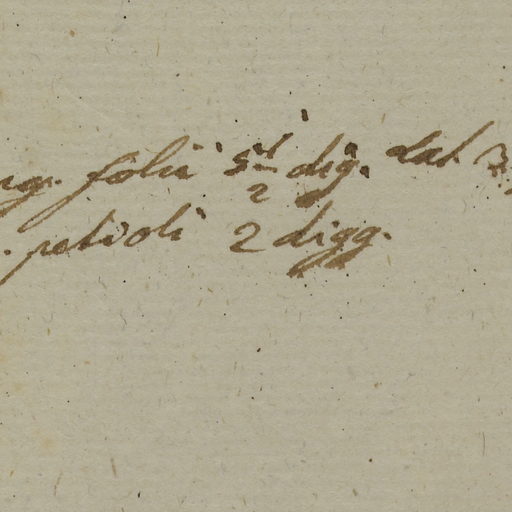 ng. folii 5 1/2 dig. lat. 3
. petioli 2 digg.